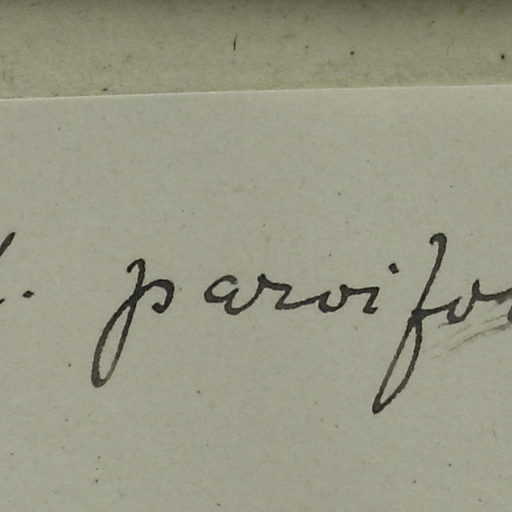 . parvifo